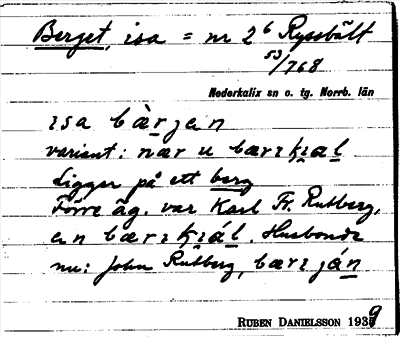 Berget, isa = nr 2⁶ Ryssbält
53/768
Nederkalix sn o. tg. Norrb. län
isa bὰrjen
variant: nær u bærıkıal
Ligger på ett berg
Förre äg. var Karl Fr. Rutberg,
en bærıkıál. Husbonde
nu: John Rutberg, bærı ján
RUBEN DANIELSSON 1939